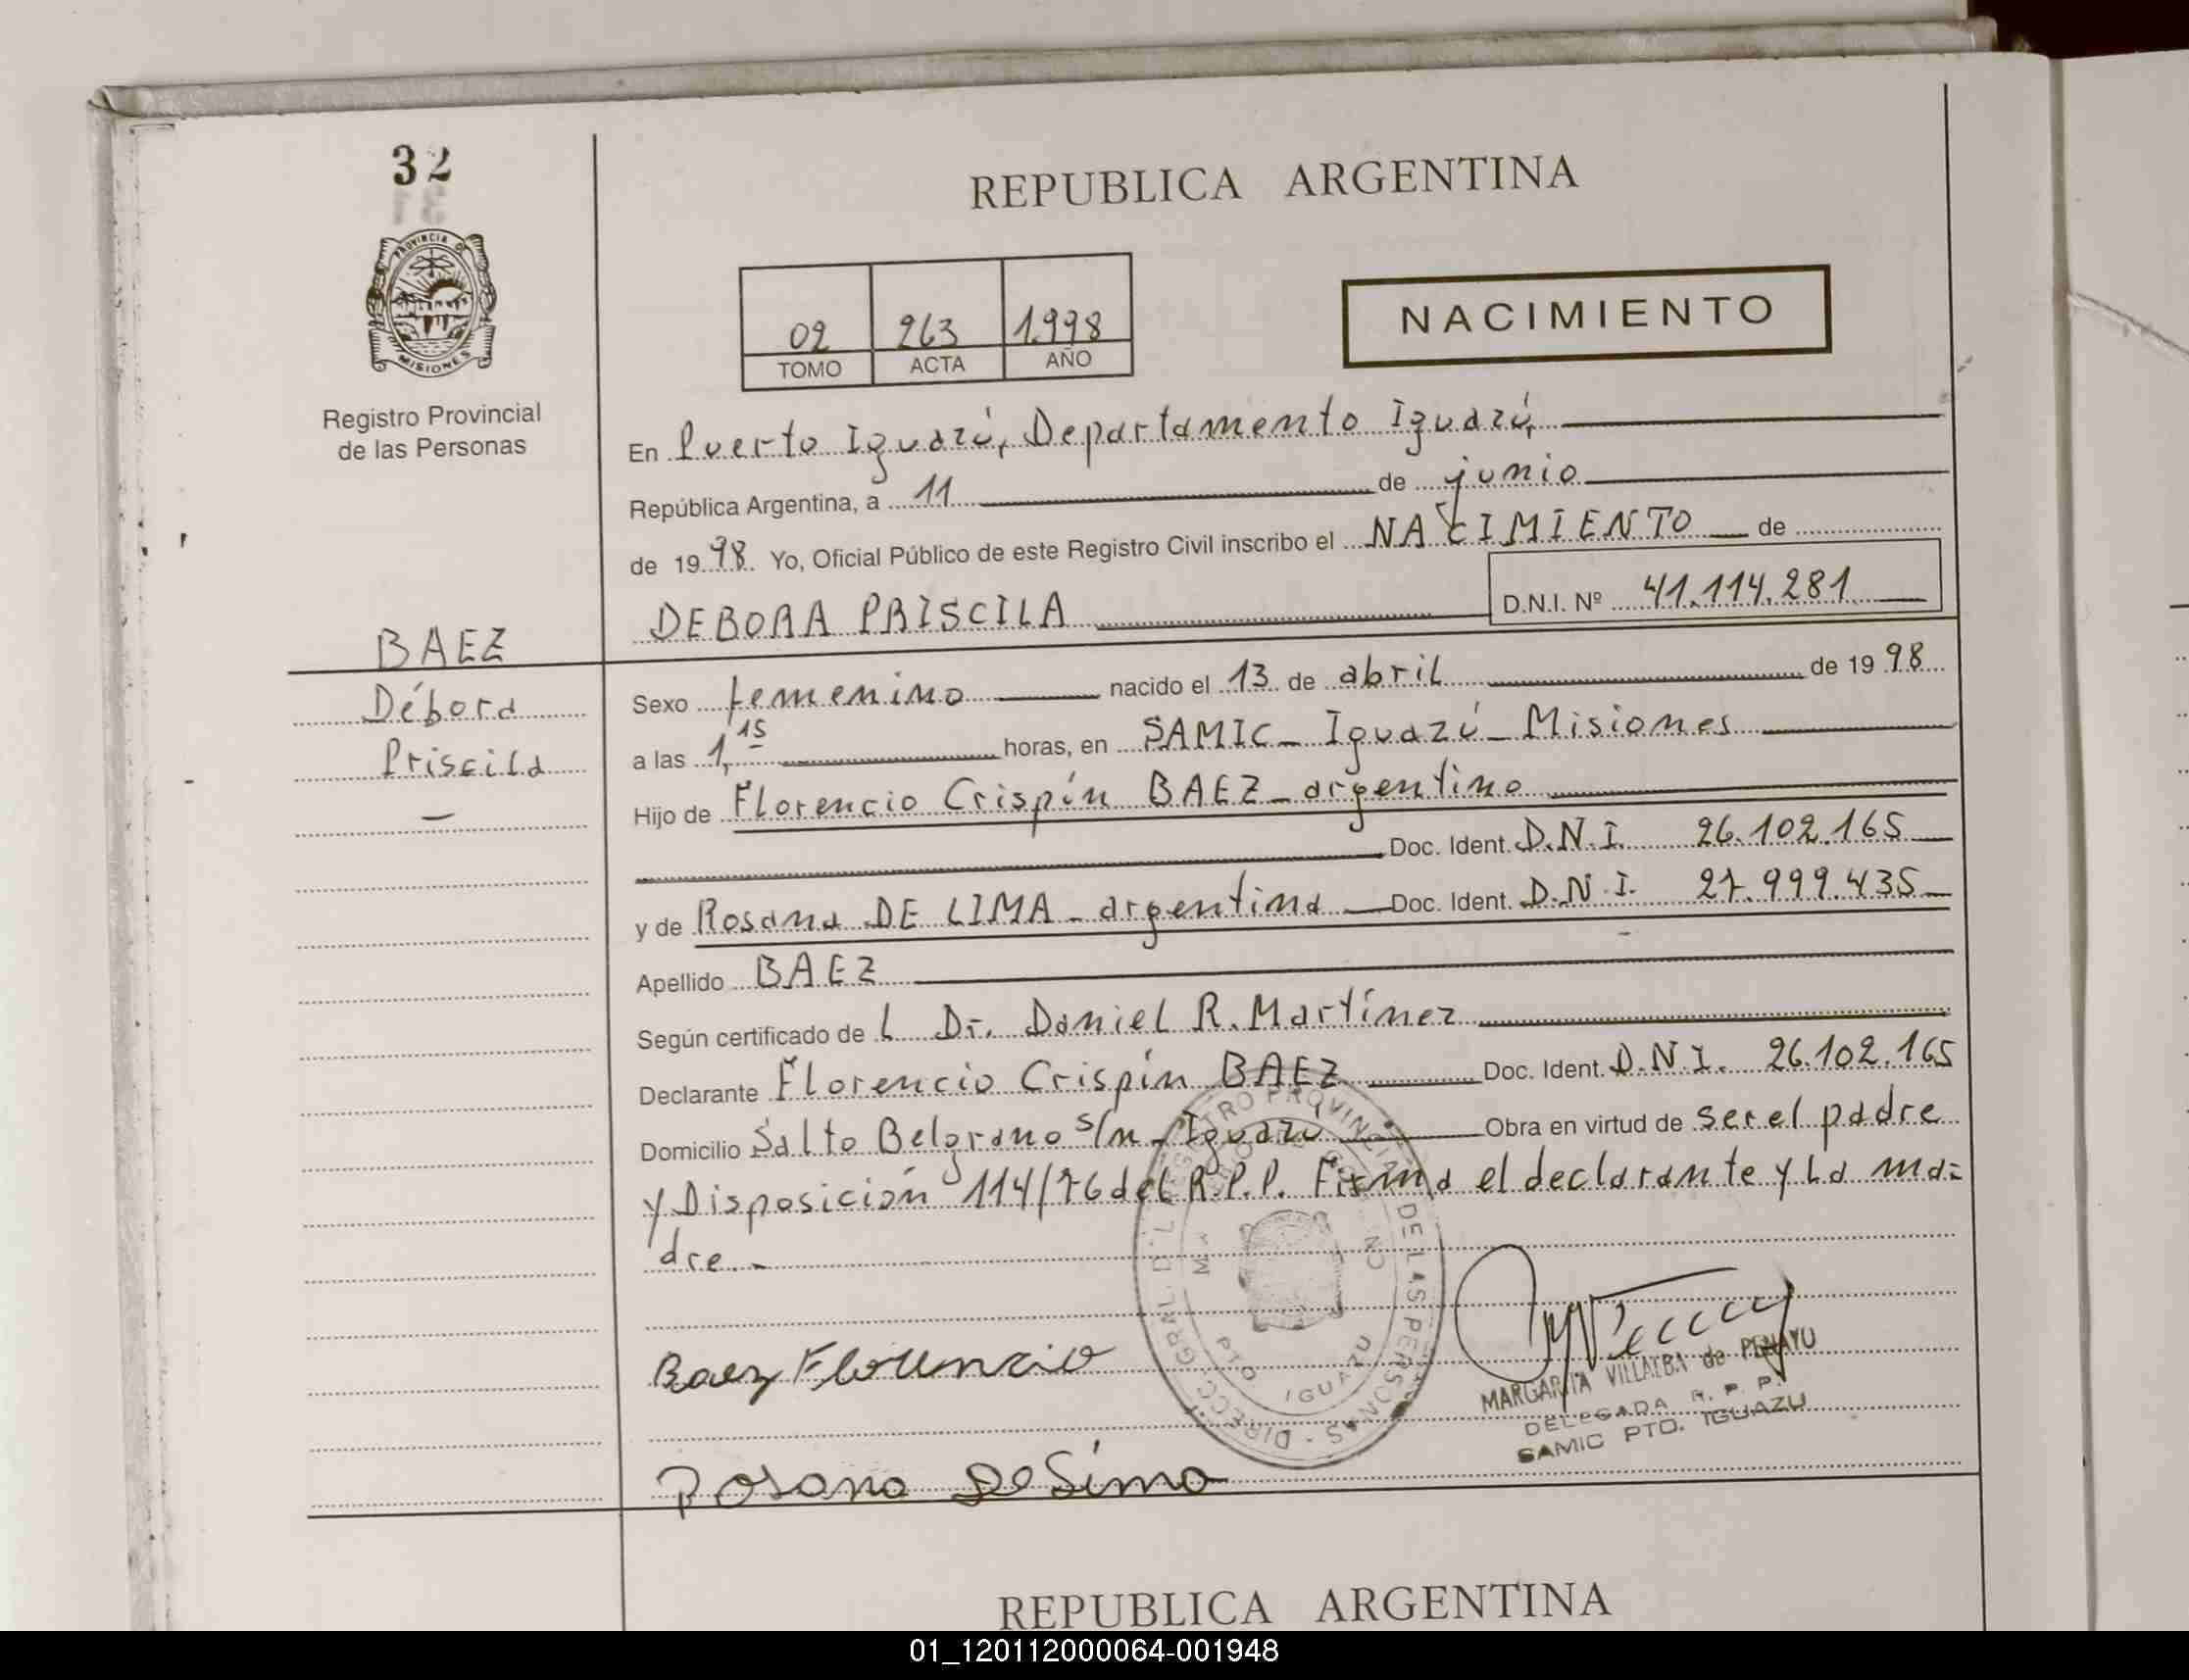 32
REPUBLICA ARGENTINA
PROVINCIA D
MISIONES
02 263 1.998
TOMO ACTA AÑO
NACIMIENTO
Registro Provincial
de las Personas
En Puerto Iguazú, Departamento Iguazú,
República Argentina, a 11 de junio
de 1998. Yo, Oficial Público de este Registro Civil inscribo el NACIMIENTO de
DEBORA PRISCILA D.N.I. Nº 41.114.281
BAEZ
Débora
Priscila
Sexo femenino nacido el 13 de abril de 1998
a las 1,15 horas, en SAMIC_ Iguazú_ Misiones
Hijo de Florencio Crispín BAEZ_argentino
Doc. Ident. D.N.I. 26.102.165
y de Rosana DE LIMA_argentina Doc. Ident. D.N.I. 27.999.435
Apellido BAEZ
Según certificado de L Dr. Daniel R. Martínez
Declarante Florencio Crispín BAEZ Doc. Ident. D.N.I. 26.102.165
Domicilio Salto Belgrano s/n_Iguazú Obra en virtud de ser el padre
y Disposición 114/76 del R.P.P. Firma el declarante y la ma=
dre.-
DIRECC. GRAL. DEL REGISTRO PROVINCIAL DE LAS PERSONAS -
PTO IGUAZU
Baez Florencio
MARGARITA VILLALBA de PENAYU
DELEGADA R. P. P.
SAMIC PTO. IGUAZU
Rosana De Lima
REPUBLICA ARGENTINA
01_120112000064-001948